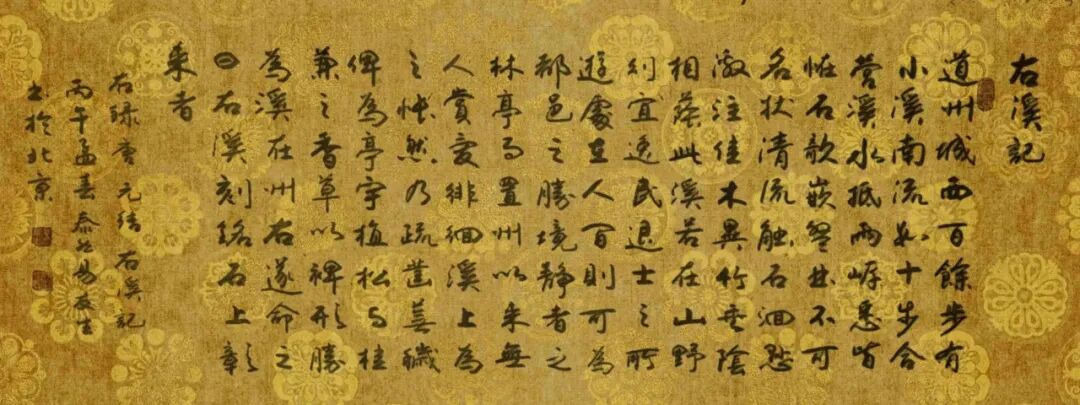 右溪記
道州城西百餘步有
小溪南流数十步合
营溪水抵兩崖悉皆
怪石欹嵌盤屈不可
名狀清流触石洄懸
激注佳木異竹垂陰
相蔭此溪若在山野
则宜逸民退士之所
遊處在人间則可為
都邑之勝境靜者之
林亭而置州以来無
人賞爱徘徊溪上為
之悵然乃疏凿蕪穢
俾為亭宇植松与桂
兼之香草以裨形勝
為溪在州右遂命之
曰右溪刻銘石上彰
来者
右録唐元結右溪記
丙午孟春
书於北京